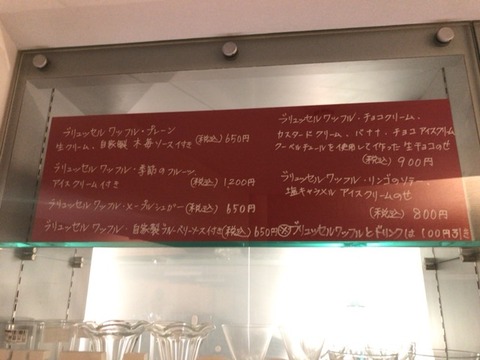 ブリュッセル ワッフル・プレーン
生クリーム、自家製 木苺ソース付き (税込) 650円
ブリュッセル ワッフル・季節のフルーツ
アイスクリーム付き (税込) 1200円
ブリュッセル ワッフル・メープルシュガー (税込) 650円
ブリュッセル ワッフル・自家製ブルーベリーソース付き(税込) 650円
ブリュッセル ワッフル・チョコクリーム、
カスタードクリーム、バナナ、チョコアイスクリーム
クーベルチュールを使用して作った 生チョコのせ
(税込) 900円
ブリュッセルワッフル・リンゴのソテー、
塩キャラメル アイスクリームのせ
(税込) 800円
※ブリュッセルワッフルとドリンクは100円引き